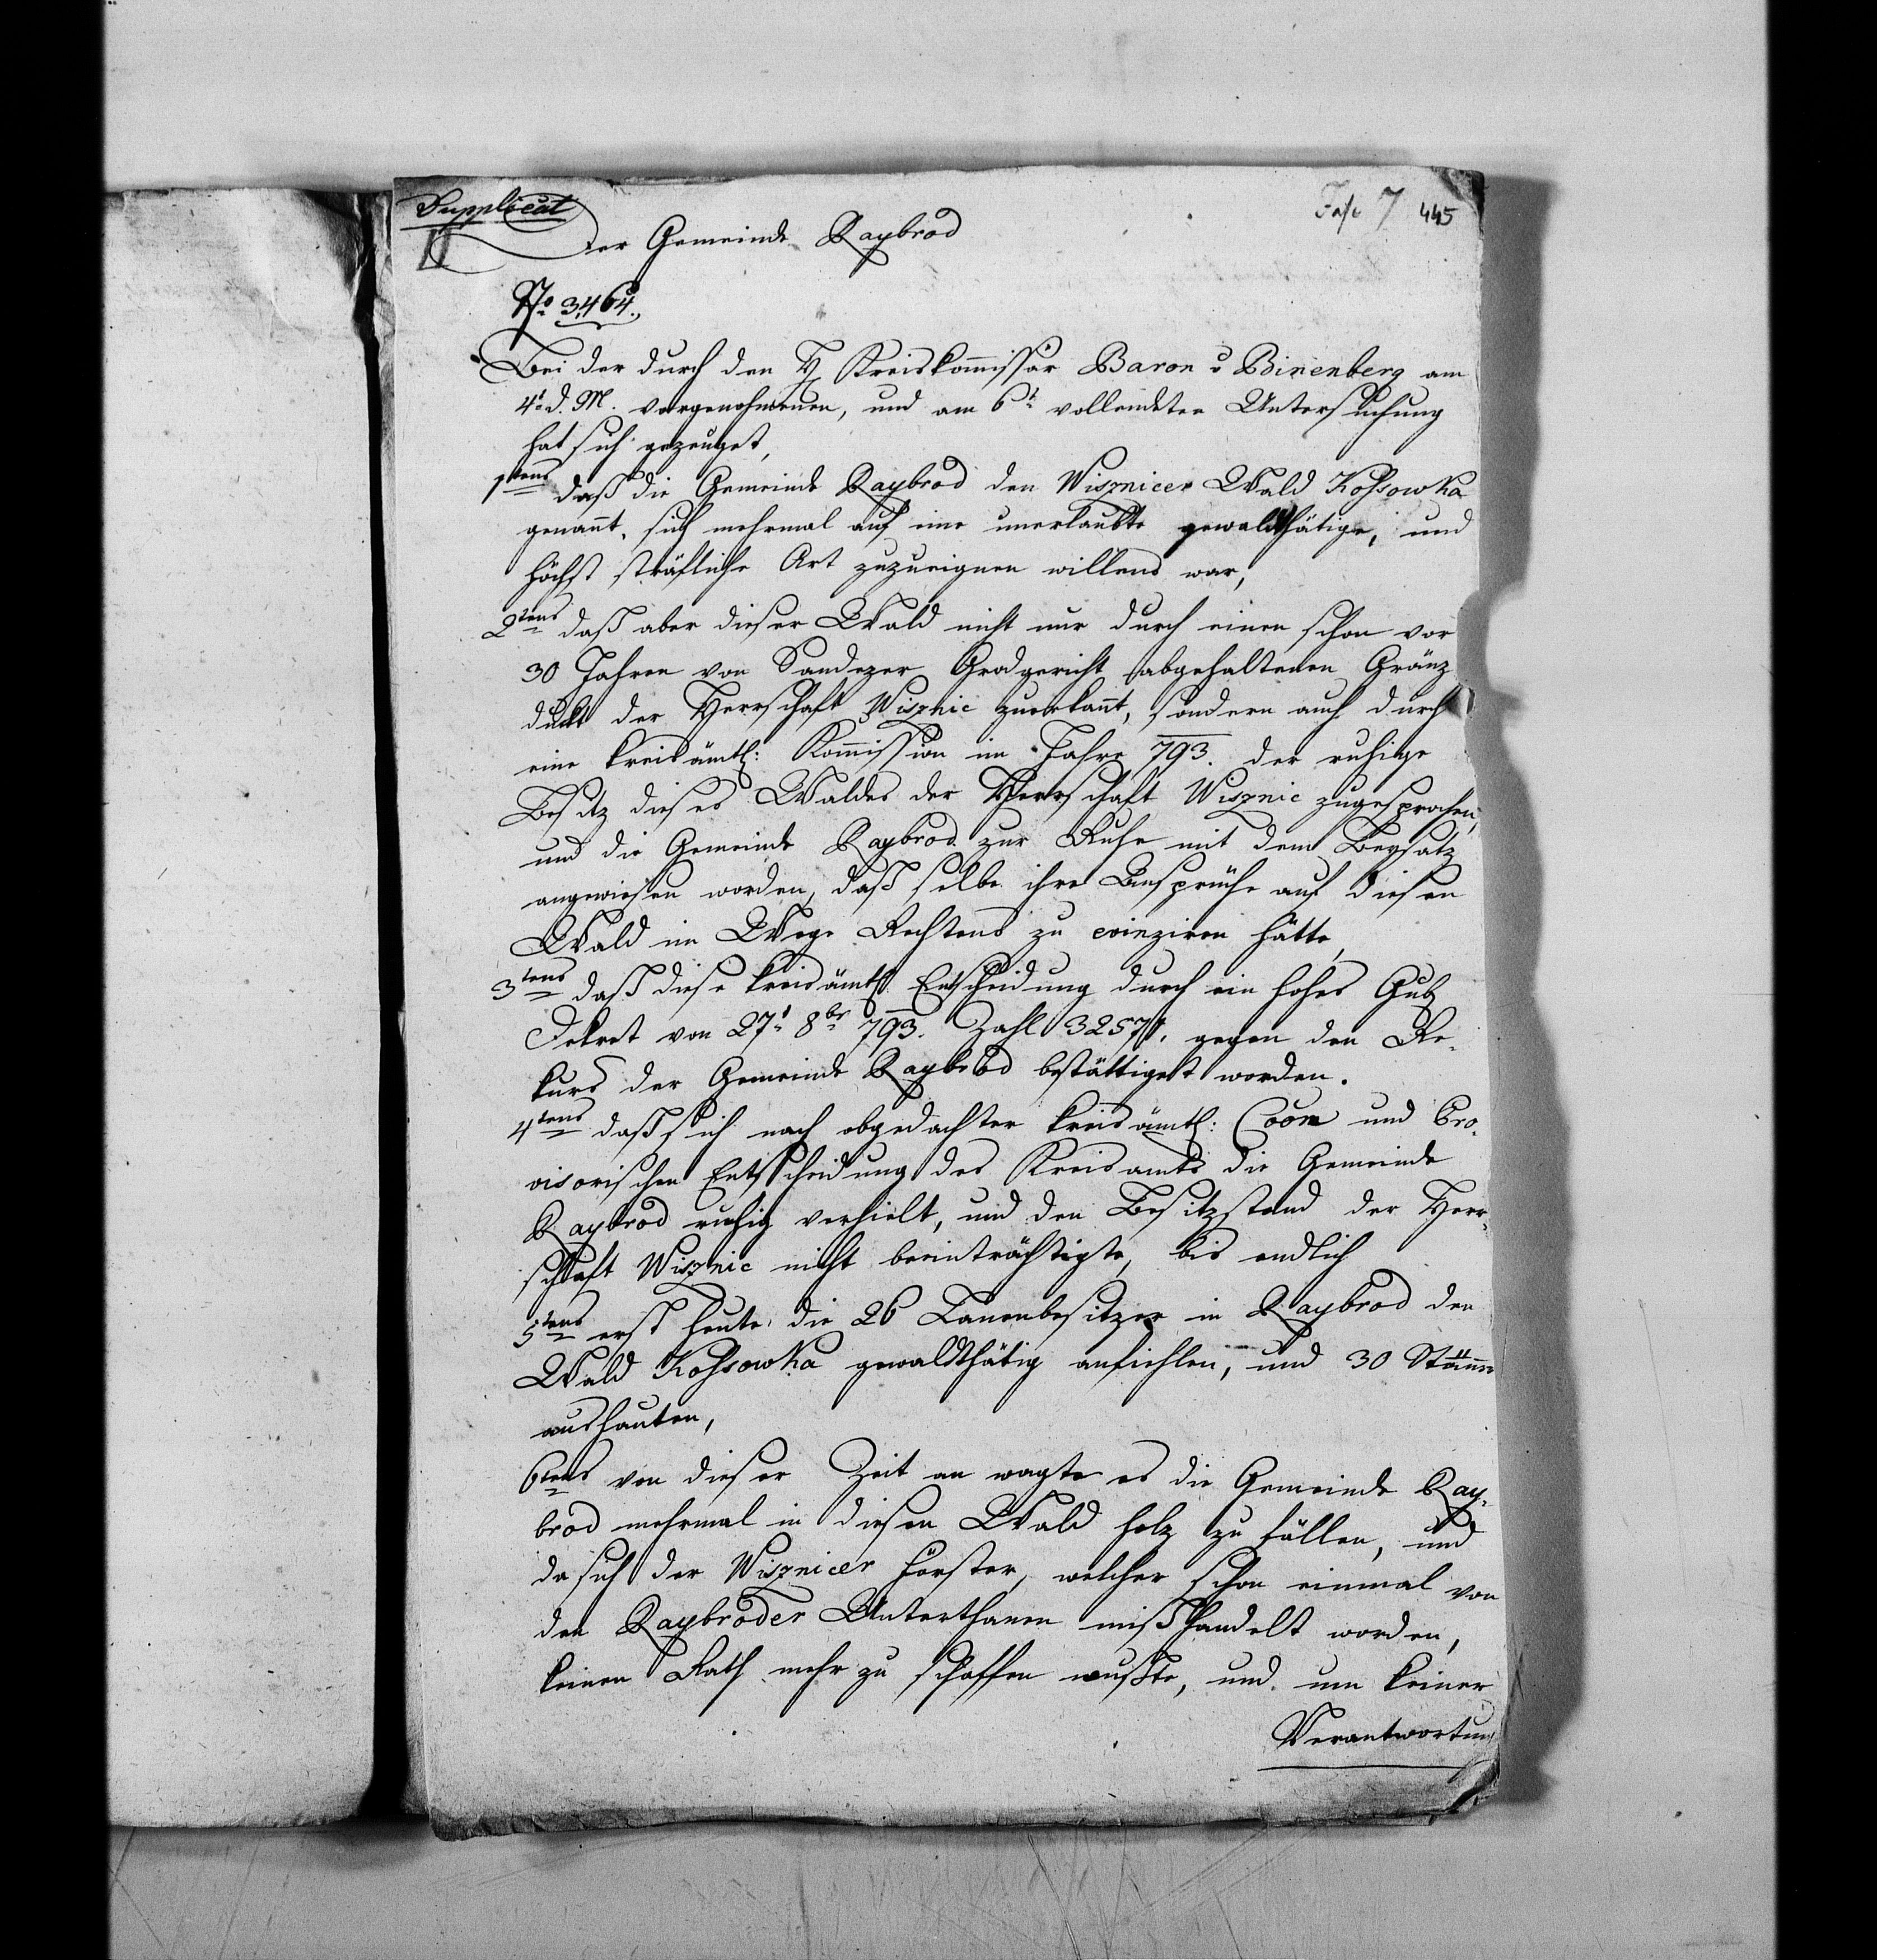 Duplicat
Fasc 7 445
der Gemeinde Raybrod
No 3464.
Bei der durch den H. Kreiskomissär Baron v Binenberg am
4t d. M. vorgenohmenen, und am 6t vollendeten Untersuchung
hat sich gezeuget,
1tens daß die Gemeinde Raybrod den Wisznicer Wald Kossowka
genannt, sich mehrmal auf eine unerlaubte gewaldthätige, und
höchst sträfliche Art zuzueignen willens war,
2tens daß aber dieser Wald nicht nur durch einen schon vor
30 Jahren von Sandezer Grodgericht abgehaltenen Gränz
dukt der Herrschaft Wisznic zuerkannt, sondern auch durch
eine kreisämtl: Komission im Jahre 793. der ruhige
Besitz dieses Waldes der Herrschaft Wisznic zugesprochen,
und die Gemeinde Raybrod zur Ruhe mit dem Beysatz
angewiesen worden, daß selbe ihre Ansprüche auf diesen
Wald im Wege Rechtens zu evinziren hätte,
3tens daß diese kreisämtl: Entscheidung durch ein hohes Gub
Dekret von 27t 8br 793. Zahl 32571. gegen den Re-
kurs der Gemeinde Raybrod bestättiget worden.
4tens daß sich nach obgedachter kreisämtl: Coon und Pro-
visorischen Entscheidung des Kreisamts die Gemeinde
Raybrod ruhig verhielt, und den Besitzstand der Herr-
schaft Wisznic nicht beeinträchtigte, bis endlich
5tens erst heute die 26 Lanenbesitzer in Raybrod den
Wald Kossowka gewaldthätig anfiehlen, und 30 Stämme
aushauten,
6tens von dieser Zeit an wagte es die Gemeinde Ray-
brod mehrmal in diesen Wald holz zu fällen, und
da sich der Wisznicer Förster, welcher schon einmal von
den Raybroder Unterthanen mißhandelt worden,
keinen Rath mehr zu schaffen wußte, und um keiner
Verantwortung